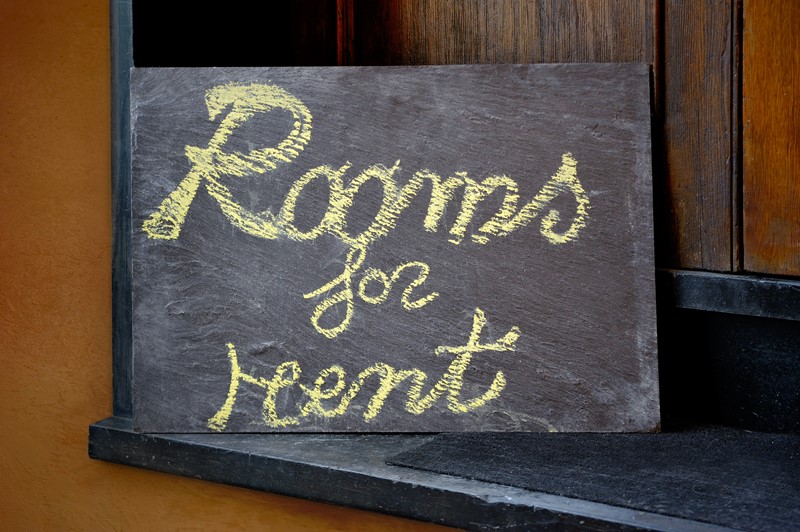 Rooms
for
rent